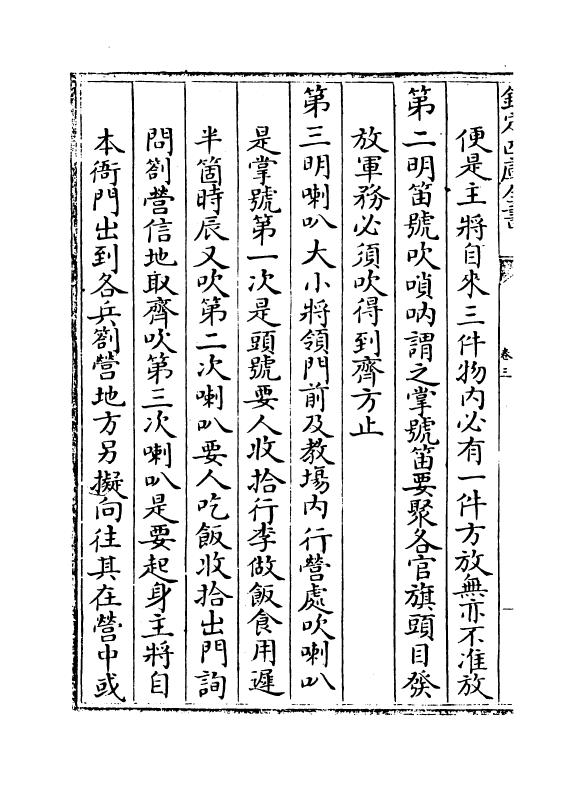 欽定四庫全書
卷三
便是主將自來三件物内必有一件方放無亦不准放
第二明笛號吹嗩吶謂之掌號笛要聚各官旗頭目發
放軍務必須吹得到齊方止
第三明喇叭大小將領門前及教場内行營處吹喇叭
是掌號第一次是頭號要人收拾行李做飯食用遲
半箇時辰又吹第二次喇叭要人吃飯收拾出門詢
問劄營信地取齊吹第三次喇叭是要起身主將自
本衙門出到各兵劄營地方另擬向往其在營中或